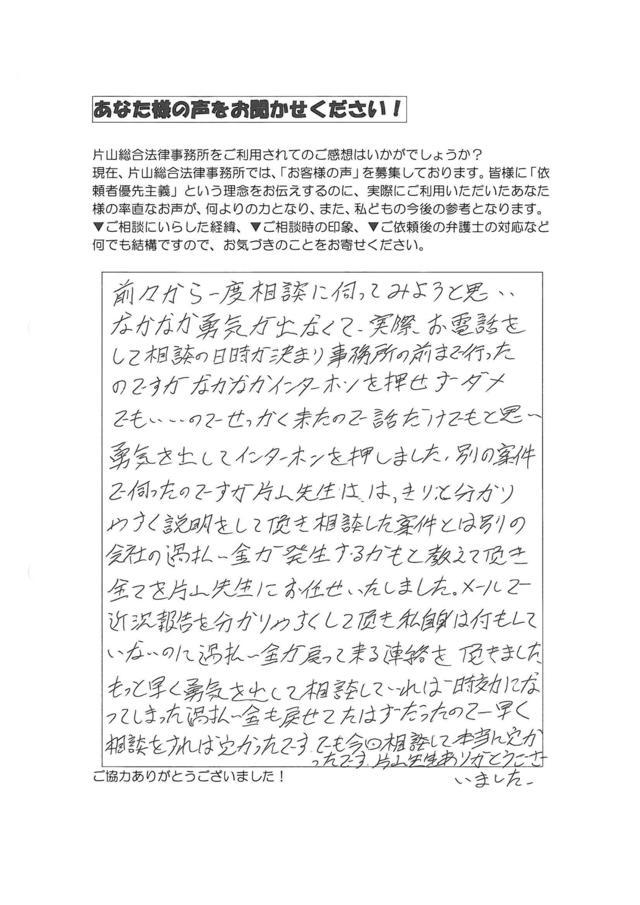 あなた様の声をお聞かせください!
片山総合法律事務所をご利用されてのご感想はいかがでしょうか?
現在、片山総合法律事務所では、「お客様の声」を募集しております。皆様に「依
頼者優先主義」という理念をお伝えするのに、実際にご利用いただいたあなた
様の率直なお声が、何よりの力となり、また、私どもの今後の参考となります。
▼ご相談にいらした経緯、▼ご相談時の印象、▼ご依頼後の弁護士の対応など
何でも結構ですので、お気づきのことをお寄せください。
前々から一度相談に伺ってみようと思い
なかなか勇気が出なくて、実際、お電話を
して相談の日時が決まり事務所の前まで行った
のですがなかなかインターホンを押せずダメ
でもいいのでせっかく来たので話だけでもと思い
勇気を出してインターホンを押しました。別の案件
で伺ったのですが片山先生は、はっきりと分かり
やすく説明をして頂き相談した案件とは別の
会社の過払い金が発生するかもと教えて頂き
全てを片山先生にお任せいたしました。メールで
近況報告を分かりやすくして頂き私自身は何もして
いないのに過払い金が戻って来る連絡を頂きました
もっと早く勇気を出して相談していれば時効にな
ってしまった過払い金も戻せてたはずだったので早く
相談をすれば良かったです。でも今回相談して本当に良か
ったです。片山先生ありがとうござ
いました。
ご協力ありがとうございました!